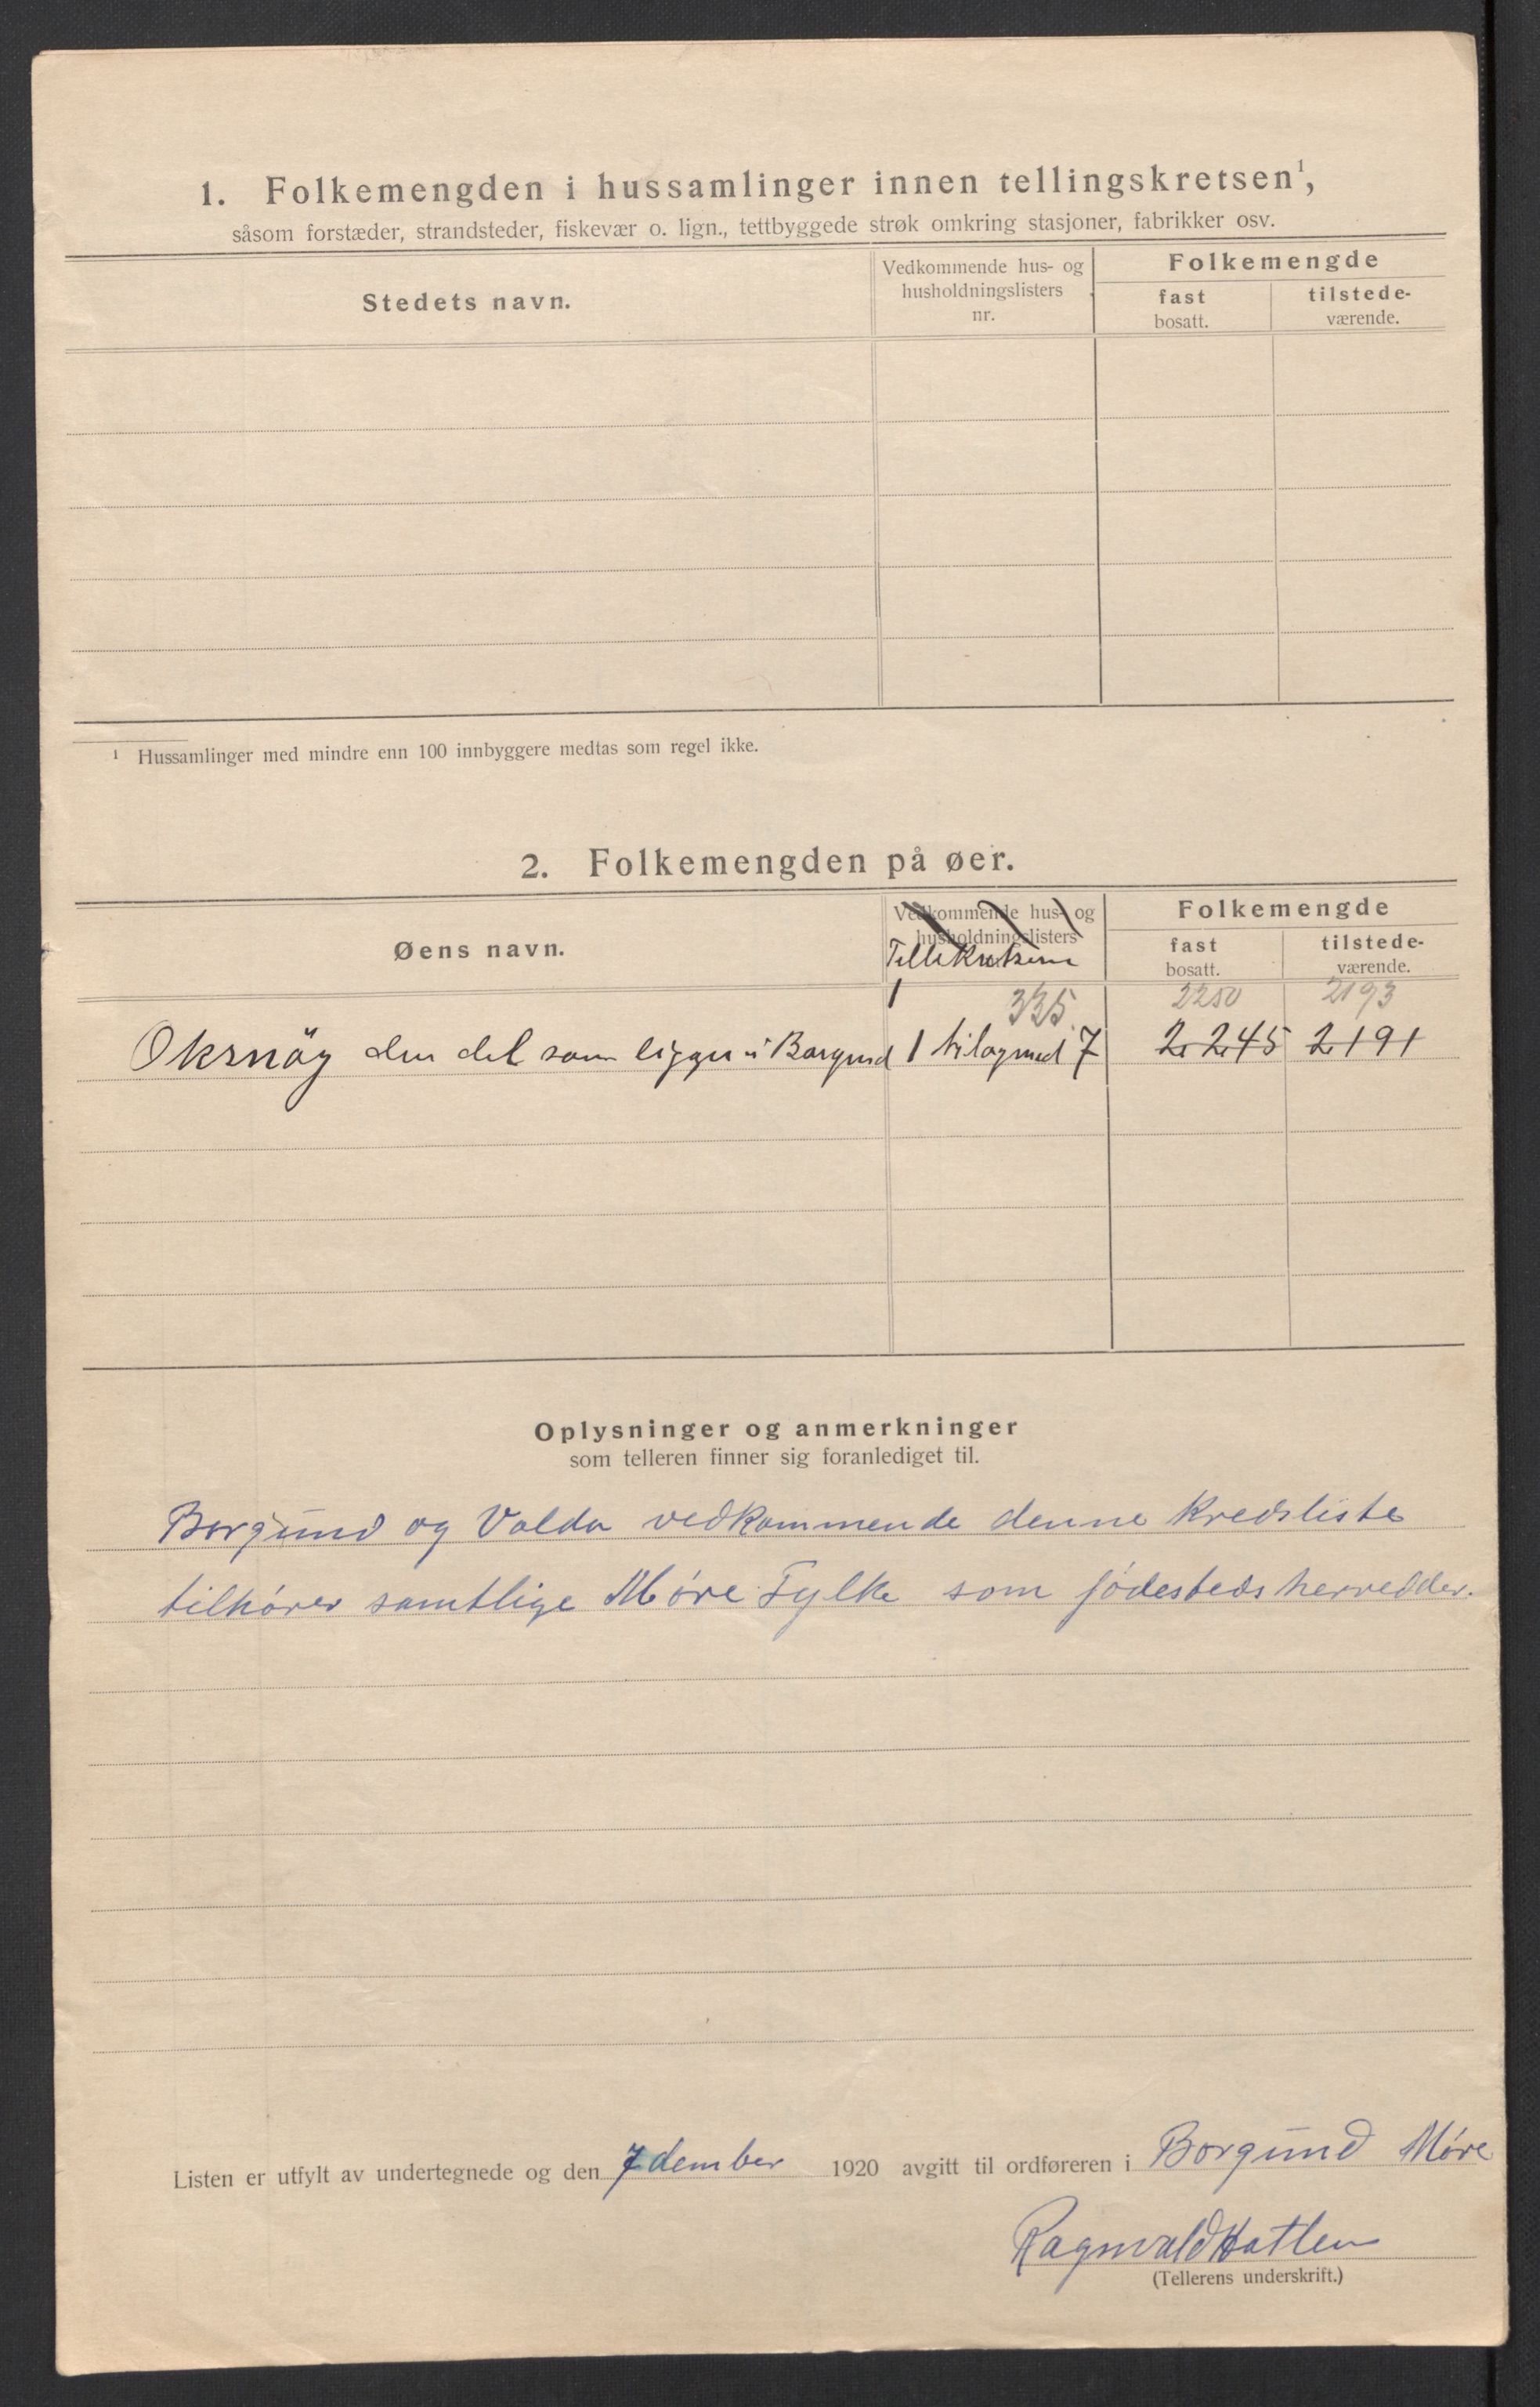 1. Folkemengden i hussamlinger innen tellingskretsen¹,
såsom forstæder, strandsteder, fiskevær o. lign., tettbyggede strøk omkring stasjoner, fabrikker osv.
Stedets navn.
Vedkommende hus- og
husholdningslisters
nr.
Folkemengde
fast
bosatt.
tilstede-
værende.
¹ Hussamlinger med mindre enn 100 innbyggere medtas som regel ikke.
2. Folkemengden på øer.
Øens navn.
Vedkommende hus- og
husholdningslisters
Tellekretsene
Folkemengde
fast
bosatt.
tilstede-
værende.
335. 2250 2193
Oksnöy den del som ligger i Borgund 1 til og med 7 2245 2191
Oplysninger og anmerkninger
som telleren finner sig foranlediget til.
Borgund og Volda vedkommende denne kredsliste
tilhører samtlige Møre Fylke som födesteds herredder.
Listen er utfylt av undertegnede og den 7 dember 1920 avgitt til ordføreren i Borgund Møre
Ragnvald Hatlen
(Tellerens underskrift.)